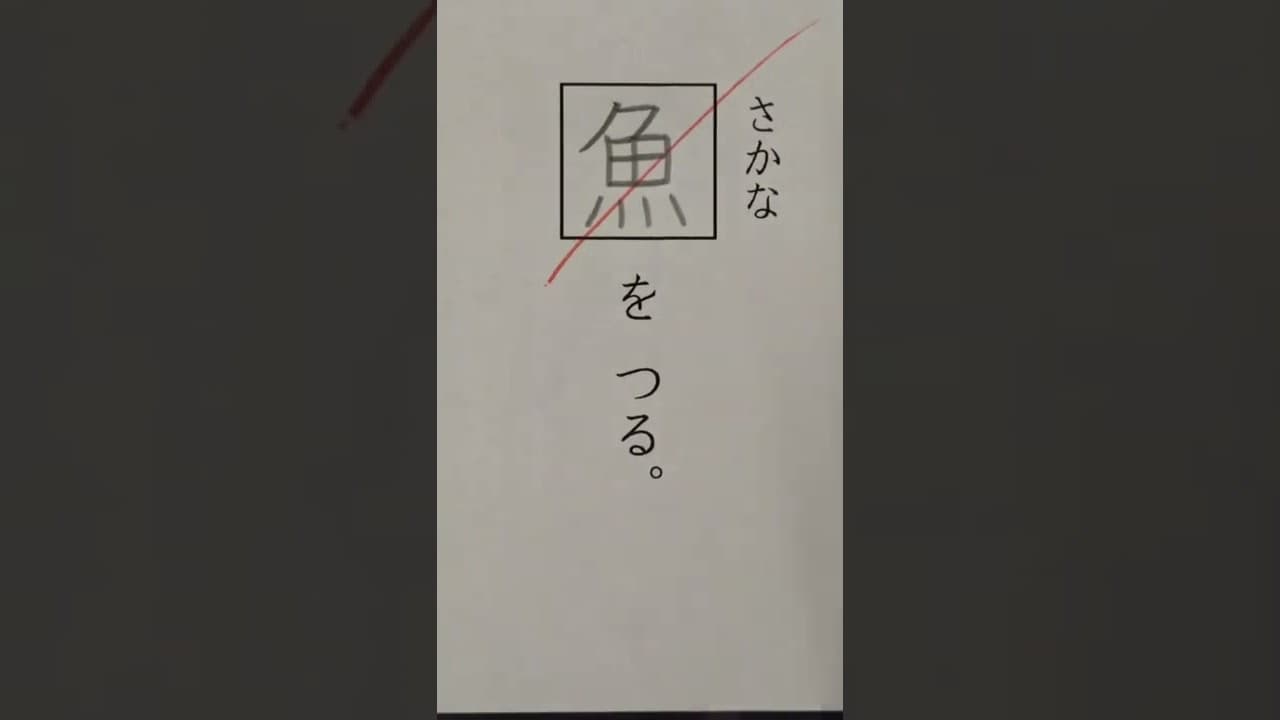 さかな
魚をつる。